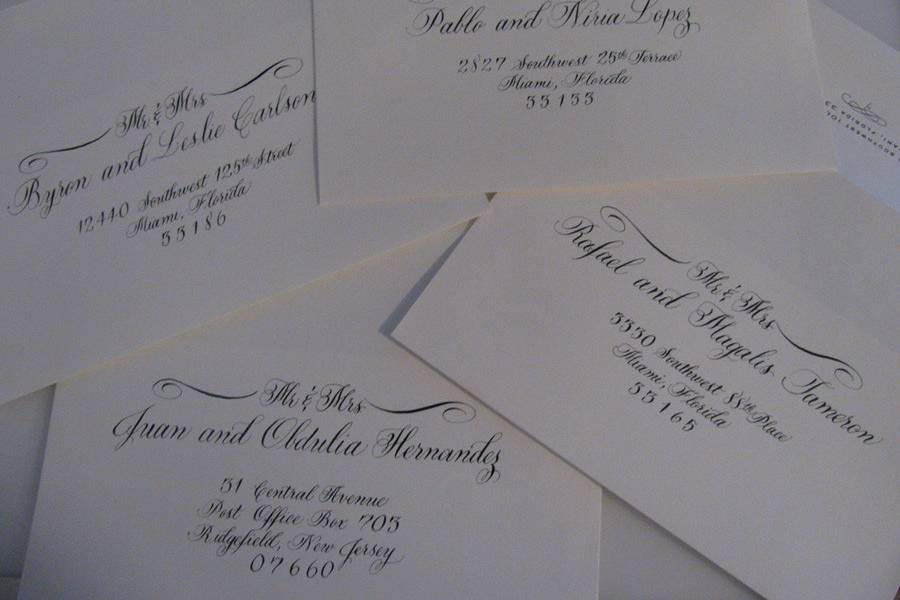 Pablo and Niria Lopez
2827 Southwest 25th Terrace
Miami, Florida
33133
Mr. & Mrs
Byron and Leslie Carlson
12440 Southwest 125th Street
Miami, Florida
33186
Mr. & Mrs
Rafael and Magalis Tameron
3330 Southwest 88th Place
Miami, Florida
33165
Mr. & Mrs
Juan and Obdulia Hernandez
31 Central Avenue
Post Office Box 703
Ridgefield, New Jersey
07660